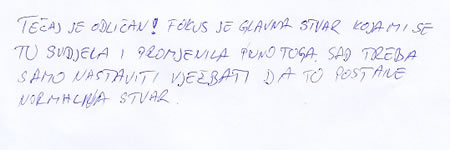 TEČAJ JE ODLIČAN! FOKUS JE GLAVNA STVAR KOJA MI SE
TU SVIDJELA I PROMJENILA PUNO TOGA. SAD TREBA
SAMO NASTAVITI VJEŽBATI DA TO POSTANE
NORMALNA STVAR.